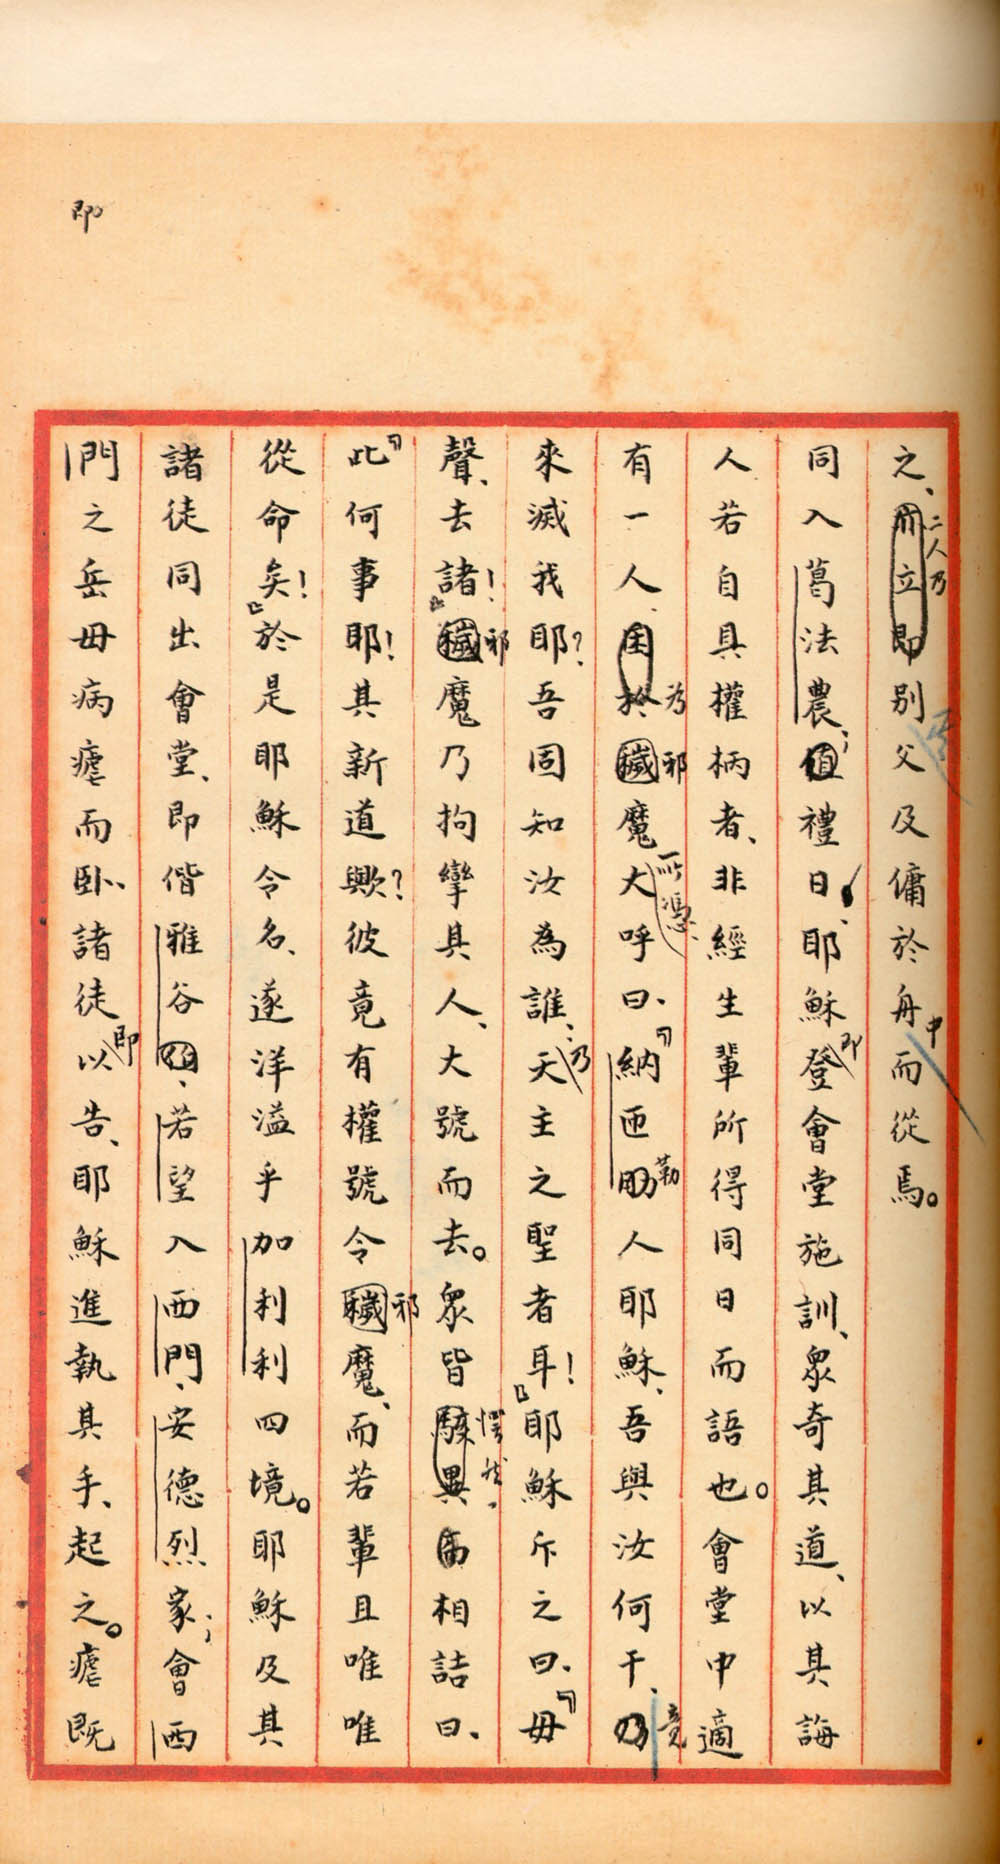 之、而立即別父及傭於舟中而從焉。
二人乃
同入葛法農、值禮日、耶穌即登會堂施訓、眾奇其道、以其誨
人若自具權柄者、非經生輩所得同日而語也。會堂中適
有一人、困於穢魔大呼曰、『納匝肋人耶穌、吾與汝何干、乃
為邪所憑、勒竟
來滅我耶?吾固知汝為誰、乃天主之聖者耳!』耶穌斥之曰、『毋
聲、去諸!』穢魔乃拘攣其人、大號而去。眾皆駭異而相詰曰、
邪愕然、
『此何事耶!其新道歟?彼竟有權號令穢魔、而若輩且唯唯
邪
從命矣!』於是耶穌令名、遂洋溢乎加利利四境。耶穌及其
諸徒同出會堂、即偕雅谷、若望入西門、安德烈家;會西
門之岳母病瘧而臥、諸徒即以告、耶穌進執其手、起之。瘧既
即